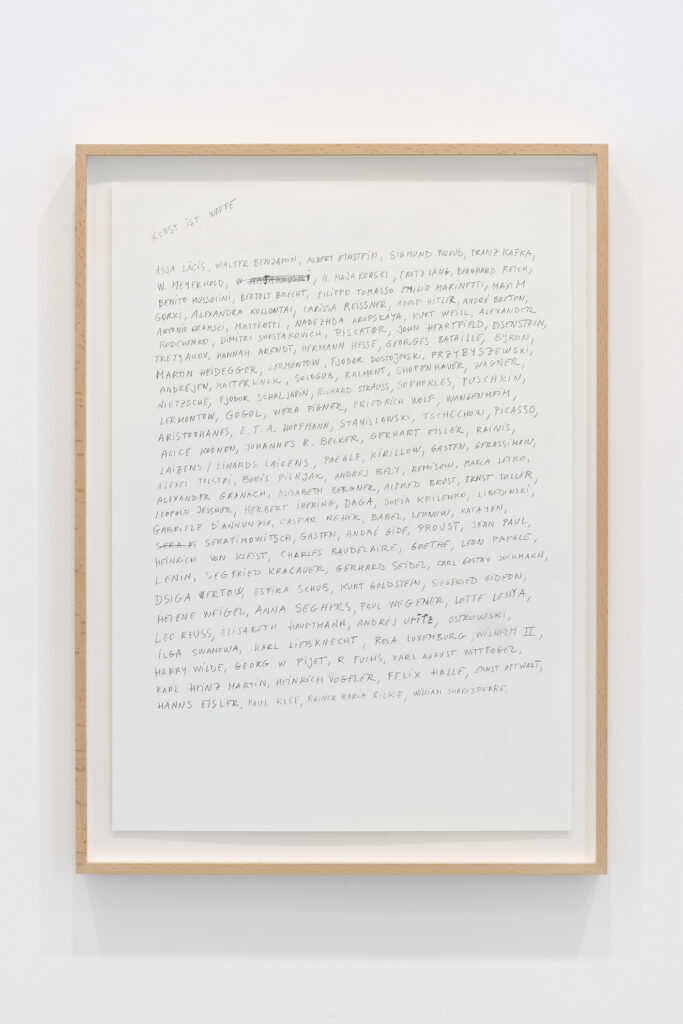 KUNST IST WAFFE
ASJA LĀCIS, WALTER BENJAMIN, ALBERT EINSTEIN, SIGMUND FREUD, FRANZ KAFKA,
W. MEYERHOLD, W. MAJAKOWSKI, FRITZ LANG, BERNHARD REICH,
BENITO MUSSOLINI, BERTOLT BRECHT, FILIPPO TOMASSO EMILIO MARINETTI, MAXIM
GORKI, ALEXANDRA KOLLONTAI, LARISSA REISSNER, ADOLF HITLER, ANDRÉ BRETON,
ANTONIO GRAMSCI, MATTEOTTI, NADEZHDA KRUPSKAYA, KURT WEILL, ALEXANDER
RODCHENKO, DIMITRI SHOSTAKOVICH, PISCATOR, JOHN HEARTFIELD, EISENSTEIN,
TRETYAKOV, HANNAH ARENDT, HERMANN HESSE, GEORGES BATAILLE, BYRON,
MARTIN HEIDEGGER, LERMONTOW, FJODOR DOSTOJEWSKI, PRZYBYSZEWSKI,
ANDREJEW, MAETERLINCK, SOLOGUB, BALMONT, SHOPENHAUER, WAGNER,
NIETZSCHE, FJODOR SCHALJAPIN, RICHARD STRAUSS, SOPHOKLES, PUSCHKIN,
LERMONTOW, GOGOL, WERA FIGNER, FRIEDRICH WOLF, WANGENHEIM,
ARISTOPHANES, E.T.A. HOFFMANN, STANISLAWSKI, TSCHECHOW, PICASSO,
ALICE KOONEN, JOHANNES R. BECKER, GERHART EISLER, RAINIS,
LAIZENS / LINARDS LAICENS, PAEGLE, KIRILLOW, GASTEW, GERASSIMOW,
ALEXEI TOLSTOI, BORIS PILNJAK, ANDREJ BELY, REMISOW, MARIA LEIKO,
ALEXANDER GRANACH, ELISABETH BERGNER, ALFRED BRUST, ERNST TOLLER,
LEOPOLD JESSNER, HERBERT IHERING, DAGA, SOFIA KRILENKO, LIBEDINSKI,
GABRIELE D'ANNUNZIO, CASPAR NEHER, BABEL, LEONOW, KATAYEW,
SERAFIMOWITSCH, GASTEN, ANDRÉ GIDE, PROUST, JEAN PAUL,
HEINRICH VON KLEIST, CHARLES BAUDELAIRE, GOETHE, LEON PAEGLE,
LENIN, SIEGFRIED KRACAUER, GERHARD SEIDEL, CARL GUSTAV JOCHMANN,
DSIGA WERTOW, ESFIRA SCHUB, KURT GOLDSTEIN, SIEGFRIED GIDEON,
HELENE WEIGEL, ANNA SEGHERS, PAUL WEGENER, LOTTE LENYA,
LEO REUSS, ELISABETH HAUPTMANN, ANDREJ UPITZ, OSTROWSKI,
ILGA SWANOWA, KARL LIEBKNECHT, ROSA LUXEMBURG, WILHELM II,
HARRY WILDE, GEORG W. PIJET, R FUCHS, KARL AUGUST WITTFOGEL,
KARL HEINZ MARTIN, HEINRICH VOGELER, FELIX HALLE, ERNST OTTWALT,
HANNS EISLER, PAUL KLEE, RAINER MARIA RILKE, WILLIAM SHAKESPEARE.